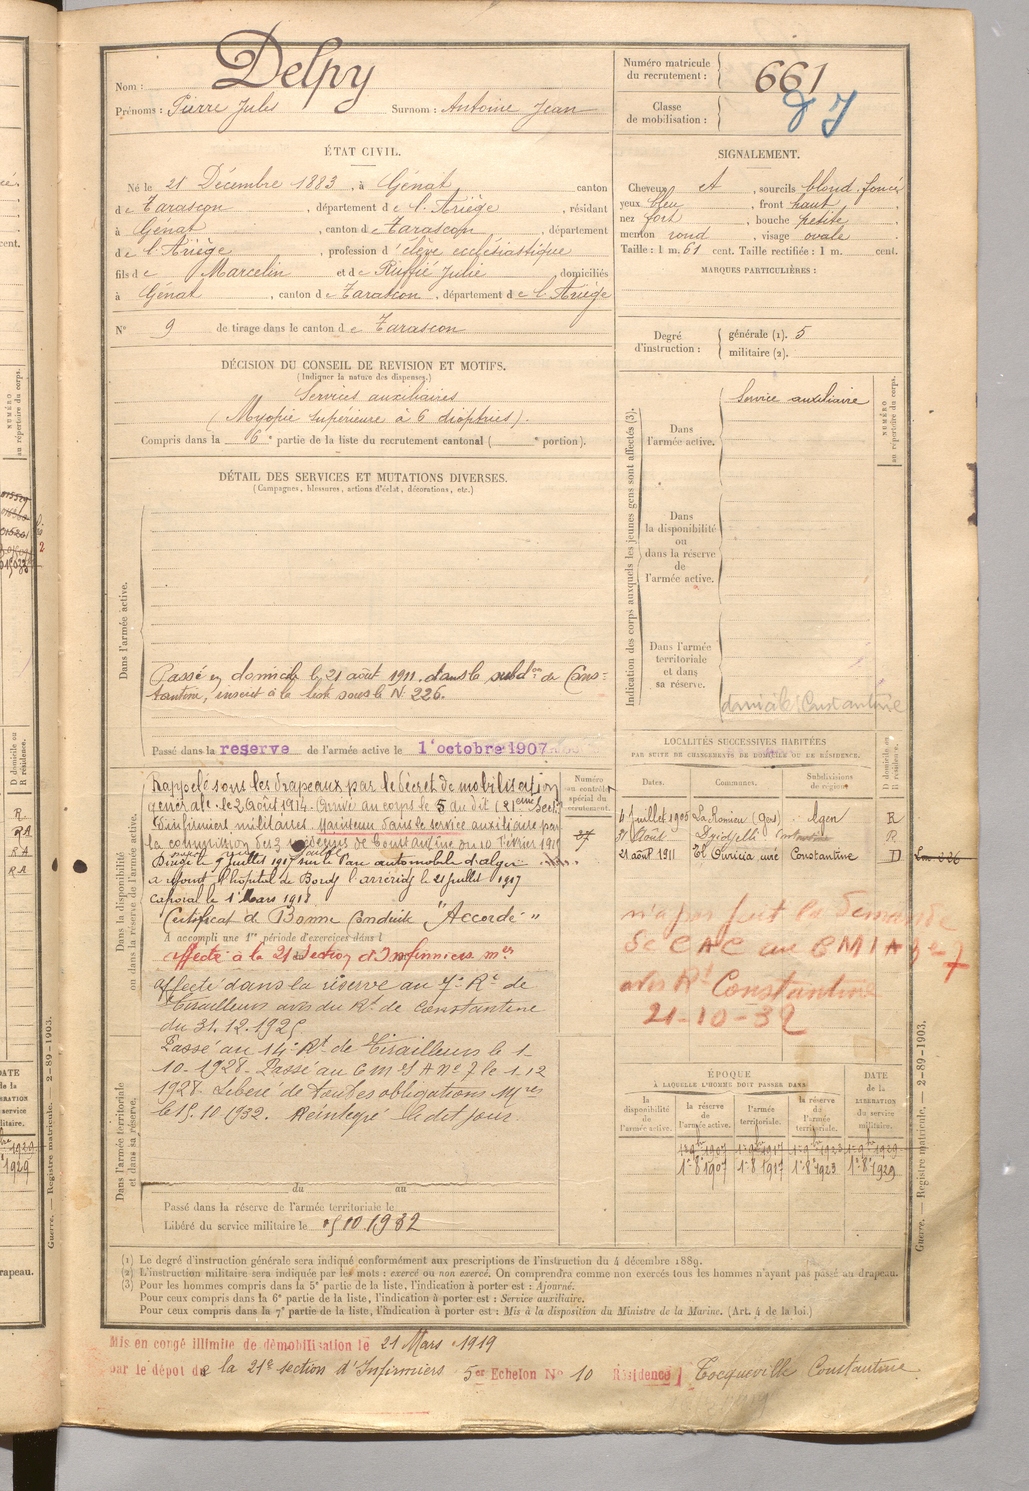 Nom : Delpy
Prénoms : Pierre Jules Surnom : Antoine Jean
Numéro matricule du recrutement : 661
Classe de mobilisation :
ÉTAT CIVIL.
Né le 21 Décembre 1883, à Génat, canton
de Tarascon, département de l'Ariège, résidant
à Génat, canton de Tarascon, département
de l'Ariège, profession d'élève ecclésiastique
fils de Marcelin et de Ruffié Julie, domiciliés
à Génat, canton de Tarascon, département de l'Ariège
N° 9 de tirage dans le canton de Tarascon
SIGNALEMENT.
Cheveux et, sourcils blond foncé
yeux bleu, front haut,
nez fort, bouche petite,
menton rond, visage ovale
Taille : 1 m. 61 cent. Taille rectifiée : 1 m. cent.
MARQUES PARTICULIÈRES :
Degré d'instruction :
générale (1). 5
militaire (2).
DÉCISION DU CONSEIL DE REVISION ET MOTIFS.
(Indiquer la nature des dispenses.)
Services auxiliaires
(Myopie supérieure à 6 dioptries).
Compris dans la 6e partie de la liste du recrutement cantonal ( e portion).
DÉTAIL DES SERVICES ET MUTATIONS DIVERSES.
(Campagnes, blessures, actions d'éclat, décorations, etc.)
Dans l'armée active.
Passé en domicile le 21 août 1911, dans la subdon de Cons-
tantine, inscrit à la liste sous le N° 226.
Passé dans la reserve de l'armée active le 1 octobre 1907
Indication des corps auxquels les jeunes gens sont affectés (3).
NUMÉRO au répertoire du corps.
Dans l'armée active.
Service auxiliaire
Dans la disponibilité ou dans la réserve de l'armée active.
Dans l'armée territoriale et dans sa réserve.
domicile Constantine
Dans la disponibilité ou dans la réserve de l'armée active.
Rappelé sous les drapeaux par le décret de mobilisation
générale le 2 Août 1914. Arrivé au corps le 5 du dit (21ème Secton
d'infirmiers militaires. Maintenu dans le service auxiliaire par
la commission des 3 médecins de Constantine du 10 février 191
Passé le 9 juillet 1917 sur le Parc automobile d'Alger
à l'hôpital de Bordj l'arréridj le 21 Juillet 1917
Caporal le 1er Mars 1918
Certificat de Bonne Conduite "Accordé"
A accompli une 1re période d'exercices dans l
affecté à la 21e Section d'Infirmiers mres
affecté dans la réserve au 7e Rt de
Tirailleurs avis du Rt de Constantine
du 31.12.192
Dans l'armée territoriale et dans sa réserve.
Passé au 14e Rt de Tirailleurs le 1-
10-1928. Passé au C M I A No 7 le 1.12
1928. Libéré de toutes obligations Mres
le 15.10 1932. Réintégré le dit jour.
du au
Passé dans la réserve de l'armée territoriale le
Libéré du service militaire le 15 10.1932
Numéro au contrôle spécial du recrutement.
LOCALITÉS SUCCESSIVES HABITÉES
PAR SUITE DE CHANGEMENTS DE DOMICILE OU DE RÉSIDENCE.
Dates. Communes. Subdivisions de région. D domicile ou R résidence.
6 Juillet 1905 La Romieu (Gers) Agen R
31 Août Djidjelli R
21 août 1911 El Ouricia curé Constantine D
n'a pas fait la demande
de C A C au C M I A No 7
avis Rt Constantine
21-10-32
ÉPOQUE
À LAQUELLE L'HOMME DOIT PASSER DANS
la disponibilité de l'armée active.
la réserve de l'armée active.
l'armée territoriale.
la réserve de l'armée territoriale.
DATE de la LIBÉRATION du service militaire.
1er 8bre 1907 1er 8 1917 1er 8 1923 1er 8 1929
(1) Le degré d'instruction générale sera indiqué conformément aux prescriptions de l'instruction du 4 décembre 1889.
(2) L'instruction militaire sera indiquée par les mots : exercé ou non exercé. On comprendra comme non exercés tous les hommes n'ayant pas passé au drapeau.
(3) Pour les hommes compris dans la 5e partie de la liste, l'indication à porter est : Ajourné.
Pour ceux compris dans la 6e partie de la liste, l'indication à porter est : Service auxiliaire.
Pour ceux compris dans la 7e partie de la liste, l'indication à porter est : Mis à la disposition du Ministre de la Marine. (Art. 4 de la loi.)
Mis en congé illimité de démobilisation le 21 Mars 1919
par le dépôt de la 21e section d'Infirmiers 5er Echelon No 10 Résidence Tocqueville Constantine
Guerre. — Registre matricule. — 2-89-1903.